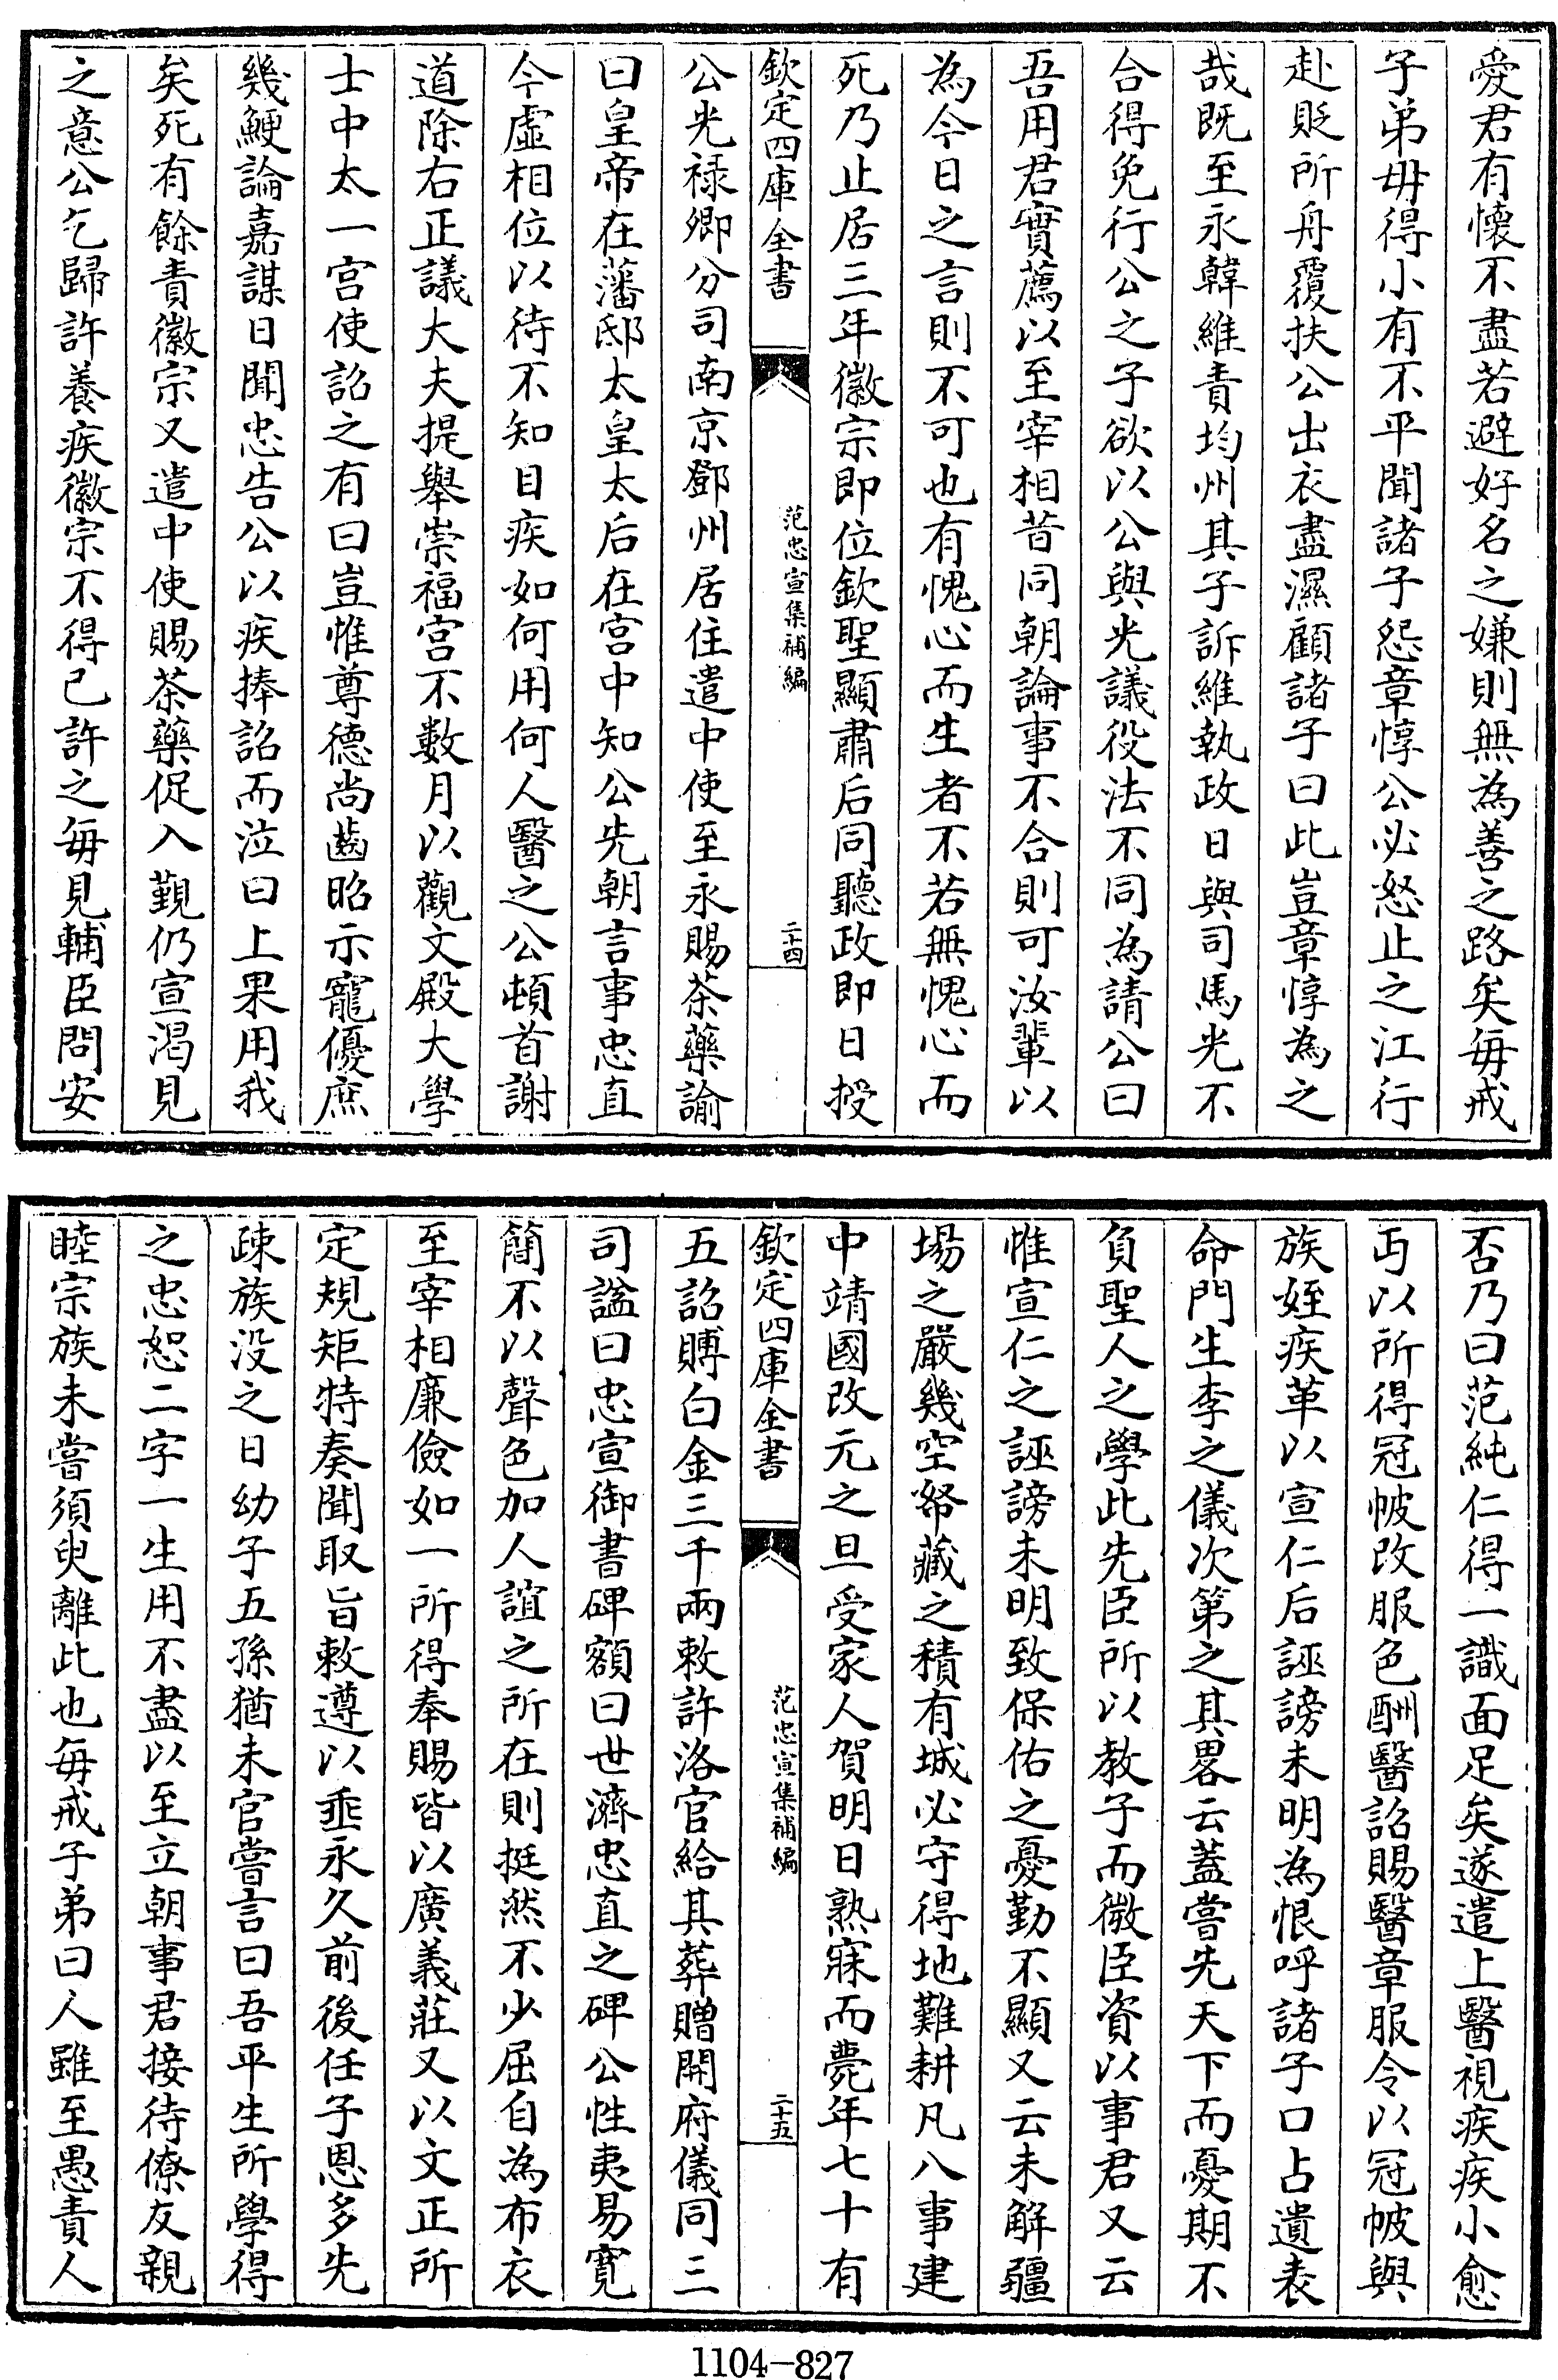 愛君有懷不盡若避好名之嫌則無為善之路矣毎戒
子弟毋得小有不平聞諸子怨章惇公必怒止之江行
赴貶所舟覆扶公出衣盡濕顧諸子曰此豈章惇為之
哉既至永韓維責均州其子訴維執政日與司馬光不
合得免行公之子欲以公與光議役法不同為請公曰
吾用君實薦以至宰相昔同朝論事不合則可汝輩以
為今日之言則不可也有愧心而生者不若無愧心而
死乃止居三年徽宗即位欽聖顯肅后同聽政即日授
欽定四庫全書 范忠宣集補編 二十四
公光祿卿分司南京鄧州居住遣中使至永賜茶藥諭
曰皇帝在藩邸太皇太后在宮中知公先朝言事忠直
今虛相位以待不知目疾如何用何人醫之公頓首謝
道除右正議大夫提舉崇福宮不數月以觀文殿大學
士中太一宮使詔之有曰豈惟尊德尚齒昭示寵優庶
幾鯁論嘉謀日聞忠告公以疾捧詔而泣曰上果用我
矣死有餘責徽宗又遣中使賜茶藥促入覲仍宣渴見
之意公乞歸許養疾徽宗不得已許之毎見輔臣問安
否乃曰范純仁得一識面足矣遂遣上醫視疾疾小愈
丐以所得冠帔改服色酬醫詔賜醫章服令以冠帔與
族姪疾革以宣仁后誣謗未明為恨呼諸子口占遺表
命門生李之儀次第之其畧云蓋嘗先天下而憂期不
負聖人之學此先臣所以教子而微臣資以事君又云
惟宣仁之誣謗未明致保佑之憂勤不顯又云未解疆
場之嚴幾空帑藏之積有城必守得地難耕凡八事建
中靖國改元之旦受家人賀明日熟寐而薨年七十有
欽定四庫全書 范忠宣集補編 二十五
五詔賻白金三千兩敕許洛官給其葬贈開府儀同三
司諡曰忠宣御書碑額曰世濟忠直之碑公性夷易寬
簡不以聲色加人誼之所在則挺然不少屈自為布衣
至宰相廉儉如一所得奉賜皆以廣義莊又以文正所
定規矩特奏聞取旨敕遵以垂永久前後任子恩多先
疎族没之日幼子五孫猶未官嘗言曰吾平生所學得
之忠恕二字一生用不盡以至立朝事君接待僚友親
睦宗族未嘗須臾離此也毎戒子弟曰人雖至愚責人
1104-827